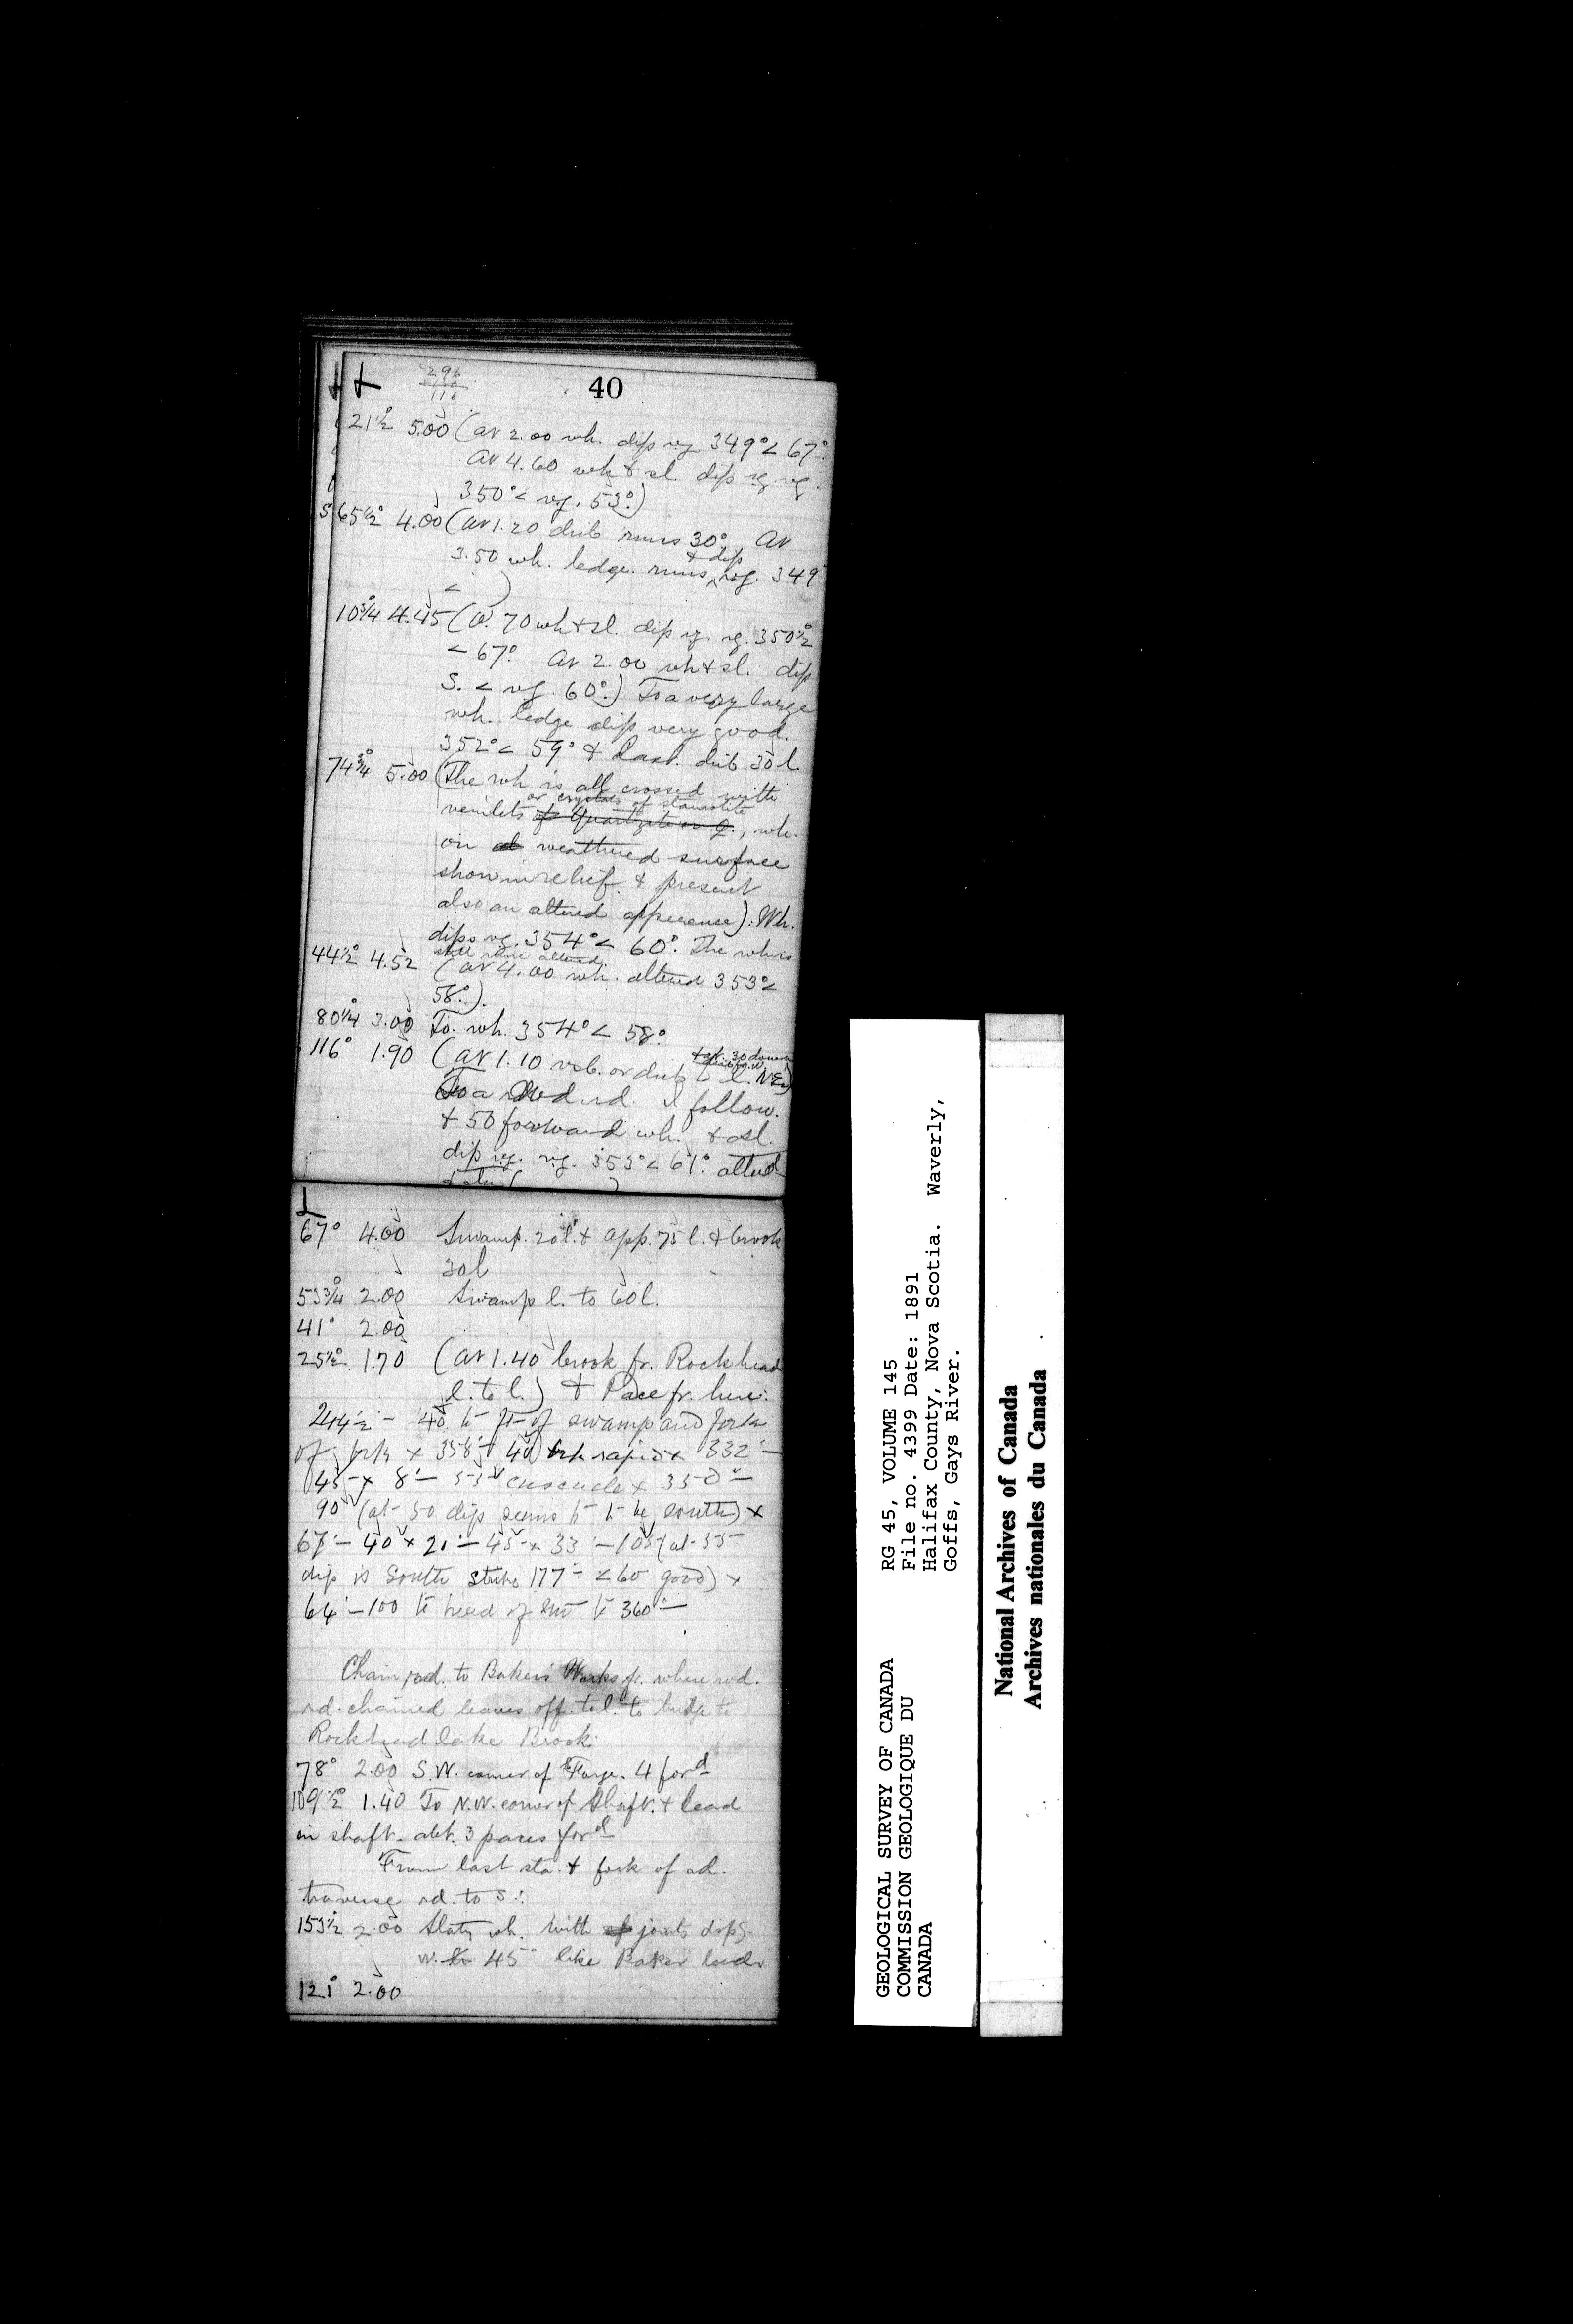 296
116
40
21½° 5.00 (At 2.00 wh. dip vg 349° < 67°.
At 4.60 wh & sl. dip vg. vg.
350° < vg. 53°.)
S 65½° 4.00 (At 1.20 drib runs 30°. At
& dip
3.50 wh. ledge. runs vg. 349
< )
10¾° 4.45 (At .70 wh & sl. dip vg. vg. 350½°
< 67°. At 2.00 wh & sl. dip
S. < vg. 60°.) To a very large
wh. ledge dip very good.
352° < 59° & last. drib 30 l.
74¾° 5.00 (The wh is all crossed with
or crystals of staurolite
veinlets of Quartzite or Q., wh.
on weathered surface
show in relief & present
also an altered apperence). Wh.
dips vg. 354° < 60°. The wh is
still more altered.
44½° 4.52 (At 4.00 wh. altered 353° <
58°.).
80¼° 3.00 To. wh. 354° < 58°.
116° 1.90 (At 1.10 or drib to l. N.E.)
To a rd. I follow.
& 50 forward wh. & sl.
dip vg. vg. 353° < 61°. altered
67° 4.00 Swamp. 20 l. & app. 75 l. & brook
30 l
53¾° 2.00 Swamp l. to 60 l.
41° 2.00
25½° 1.70 (At 1.40 brook fr. Rockhead
l. to l.) & Pace fr. here:
244½ – 40 to ft of swamp and forks
of brk × 358° – 40 rapid × 332° –
45 × 8° – 53 cascade × 350° –
90 (at 50 dip seems to be south) ×
67° – 40 × 21° – 45 × 33° – 105 (at 35
dip is South strike 177° < 60 good) ×
64° – 100 to head of to 360° –
Chain rd. to Baker's Works fr. where wd.
rd. chained leaves off to l. to bridge to
Rockhead Lake Brook:
78° 2.00 S.W. corner of Forge. 4 ford
109½° 1.40 To N.W. corner of shaft. & lead
in shaft. abt. 3 paces ford
From last sta. & fork of rd.
traverse rd. to S.:
153½ 2.00 Slaty wh. with joints dips.
W. 45° like Baker lead
121° 2.00
GEOLOGICAL SURVEY OF CANADA
COMMISSION GEOLOGIQUE DU
CANADA
RG 45, VOLUME 145
File no. 4399 Date: 1891
Halifax County, Nova Scotia. Waverly,
Goffs, Gays River.
National Archives of Canada
Archives nationales du Canada